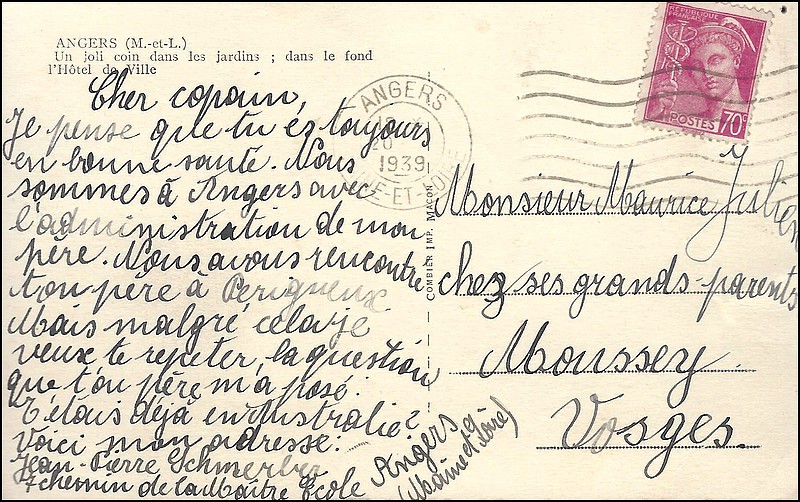 ANGERS (M.-et-L.)
Un joli coin dans les jardins ; dans le fond
l'Hôtel de Ville
Cher copain,
Je pense que tu es toujours
en bonne santé. Nous
sommes à Angers avec
l'administration de mon
père. Nous avons rencontre
ton père à Perigueux
Mais malgré cela je
veux te repeter, la question
que ton père m'a posé:
T'étais déjà en Australie?
Voici mon adresse:
Jean-Pierre Schmerber
7 chemin de la Maître École
Angers
(Maine et Loire)
COMBIER IMP. MACON
ANGERS
20
1939
ET
RÉPUBLIQUE
FRANÇAISE
POSTES 70c
Monsieur Maurice Julien
chez ses grands-parents
Moussey
Vosges.